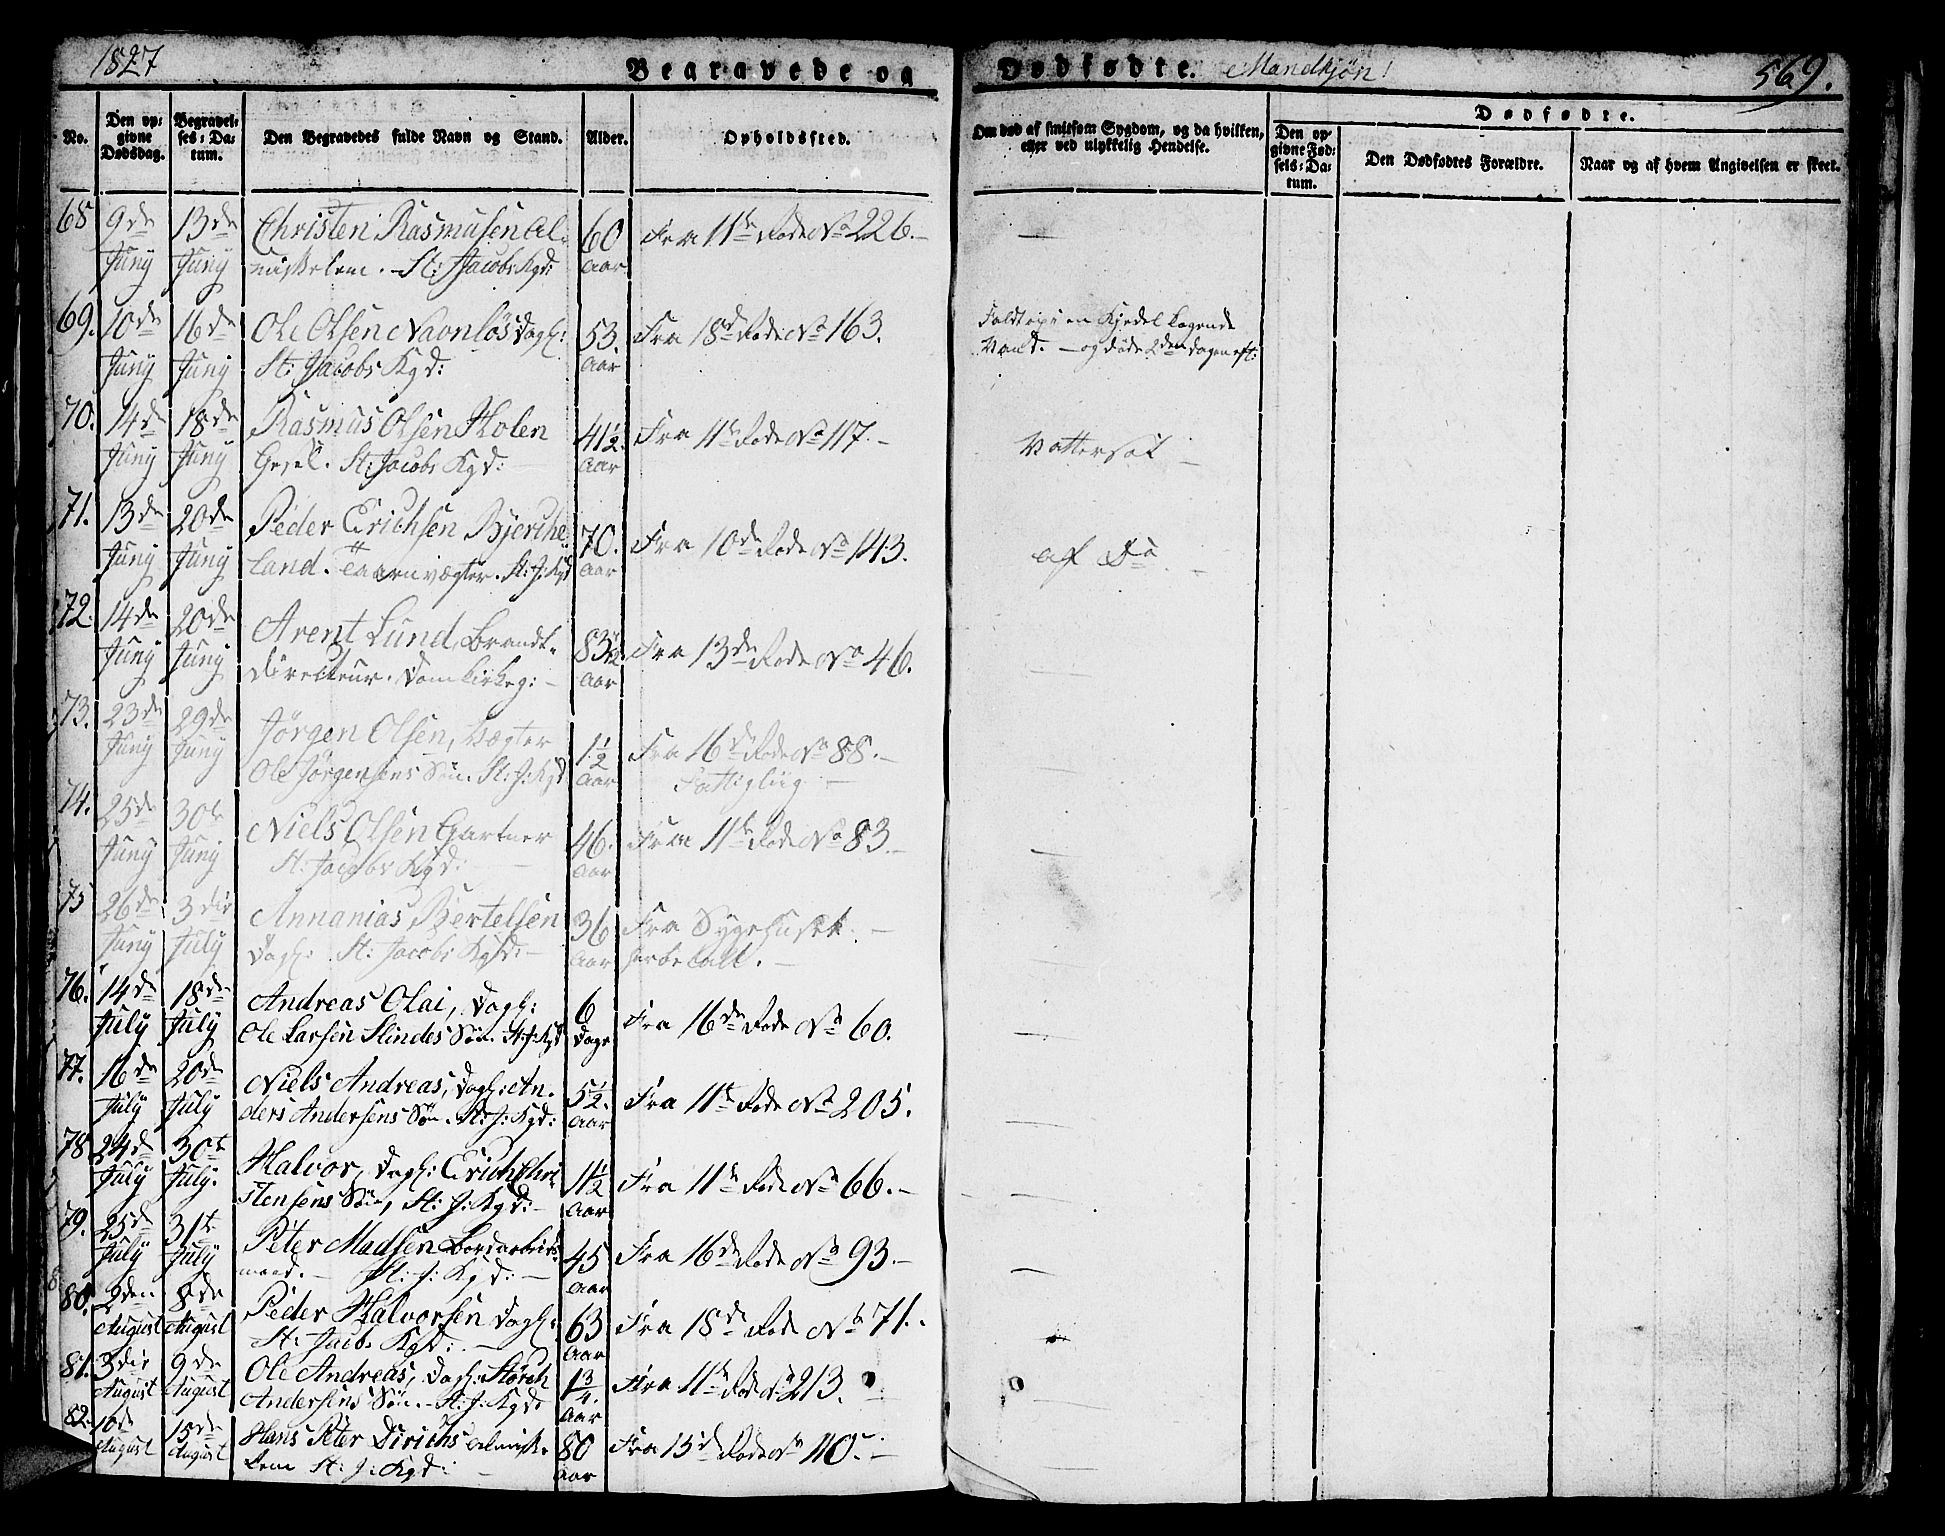 1827
Begravede og
Dødfødte. Mandkjøn!
569.
No.
Den op-
givne
Dødsdag.
Begravel-
ses-Da-
tum.
Den Begravedes fulde Navn og Stand.
Alder.
Opholdssted.
Om død af smitsom Sygdom, og da hvilken,
eller ved ulykkelig Hendelse.
Dødfødte.
Den op-
givne Fød-
sels-Da-
tum.
Den Dødfødtes Forældre.
Naar og af hvem Angivelsen er skeet.
68 9de 13de Christen Rasmusen Al- 60 Fra 11te Rode No 226. —
Juny Juny misselem. St: Jacobs Kgd: Aar
69. 10de 16de Ole Olsen Navnløs Dagl: 53. Fra 18de Rode No 163. Faldt op i en Kjedel kogende
Juny Juny St: Jacobs Kgd: Aar Vand. — og døde 2den Dagen eft:
70. 14de 18de Rasmus Olsen Holen 41½ Fra 11te Rode No 117. — Vattersot —
Juny Juny Gesel. St: Jacobs Kgd: Aar
71. 13de 20de Peder Erichsen Bjerche- 70. Fra 10de Rode No 143. af Do
Juny Juny land. Taarnvægter. St: J: Kgd Aar
72. 14de 20de Arent Lund, Brandt- 83½ Fra 13de Rode No 46.
Juny Juny Directeur. Domkirkeg: — Aar
73. 23de 29de Jørgen Olsen, Vægter 1½ Fra 16de Rode No 88. —
Juny Juny Ole Jørgensens Søn. St: J: Kgd Aar Fattigliig —
74. 25de 30te Niels Olsen Gartner 46. Fra 11te Rode No 83. —
Juny Juny St: Jacobs Kgd: Aar
75 26de 3die Annanias Bertelsen 36 Fra Sygehuset. —
Juny July Dagl: St: Jacobs Kgd: — Aar
76. 14de 18de Andreas Olai, Dagl: 6 Fra 16de Rode No 60.
July July Ole Larsen Slindes Søn. St: J: Kgd Dage
77. 16de 20de Niels Andreas, Dagl: An- 5½ Fra 11te Rode No 205.
July July ders Andersens Søn. St: J: Kgd: Aar
78 24de 30te Halvor, Dagl: Erich Chri- 1½ Fra 11te Rode No 66. —
July July. stensens Søn, St: J: Kgd: — Aar
79. 25de 31te Peter Madsen Bordarbeids- 45 Fra 16de Rode No 93. —
July July mand. — St: J: Kgd: — Aar
80. 2den 8de Peder Halvorsen Dagl: 63 Fra 18de Rode No 71. .
August August St: Jacobs Kgd: — Aar
81. 3die 9de Ole Andreas, Dagl: Størch 1¾ Fra 11te Rode No 213.
August August Andersens Søn. St: J: Kgd: Aar
82. 10de 15de Hans Peter Dirichs Almisse- 80 Fra 15de Rode No 40. —
August August lem St: J: Kgd: Aar